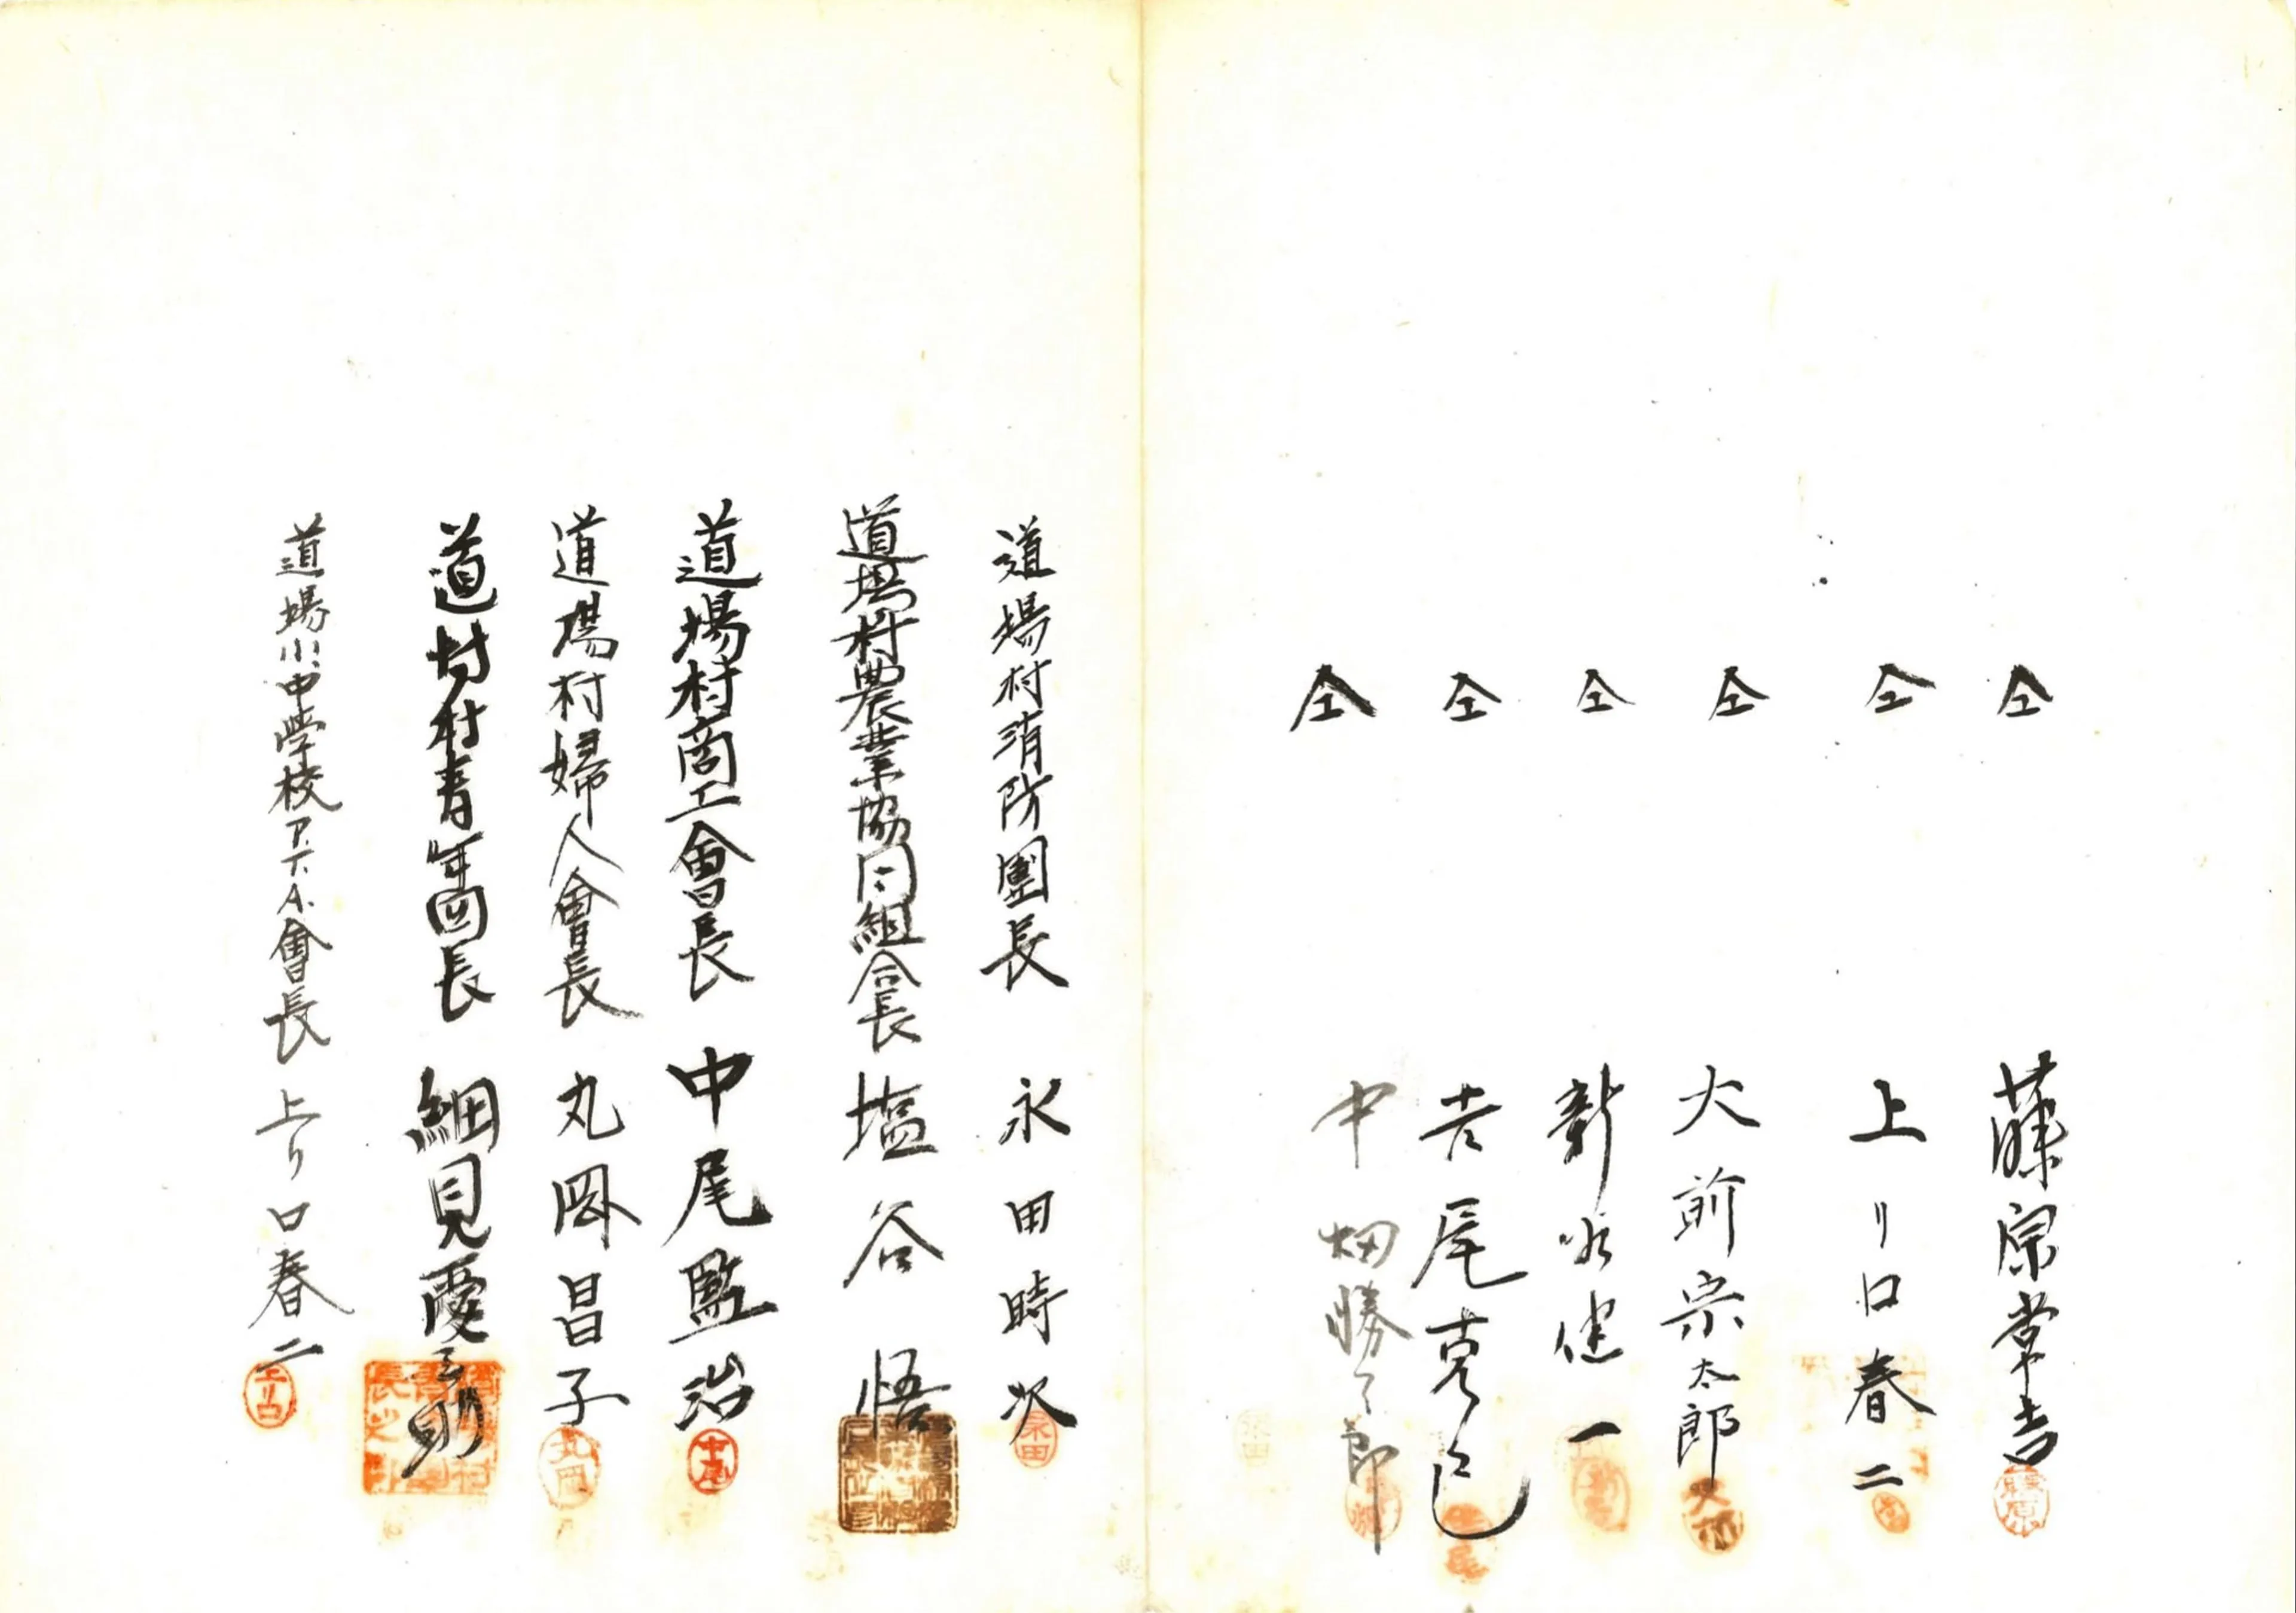 仝 藤原常吉
仝 上リ口春二
仝 大前宗太郎
仝 新水健一
仝 吉尾克己
仝 中畑勝了郎
道場村消防團長 永田時次
道場村農業協同組合長 塩谷悟
道場村商工會長 中尾監治
道場村婦人會長 丸岡昌子
道場村青年団長 細見慶三助
道場小中学校P.T.A.會長 上り口春二
藤原
大前
中尾
丸岡
上リ口
永田